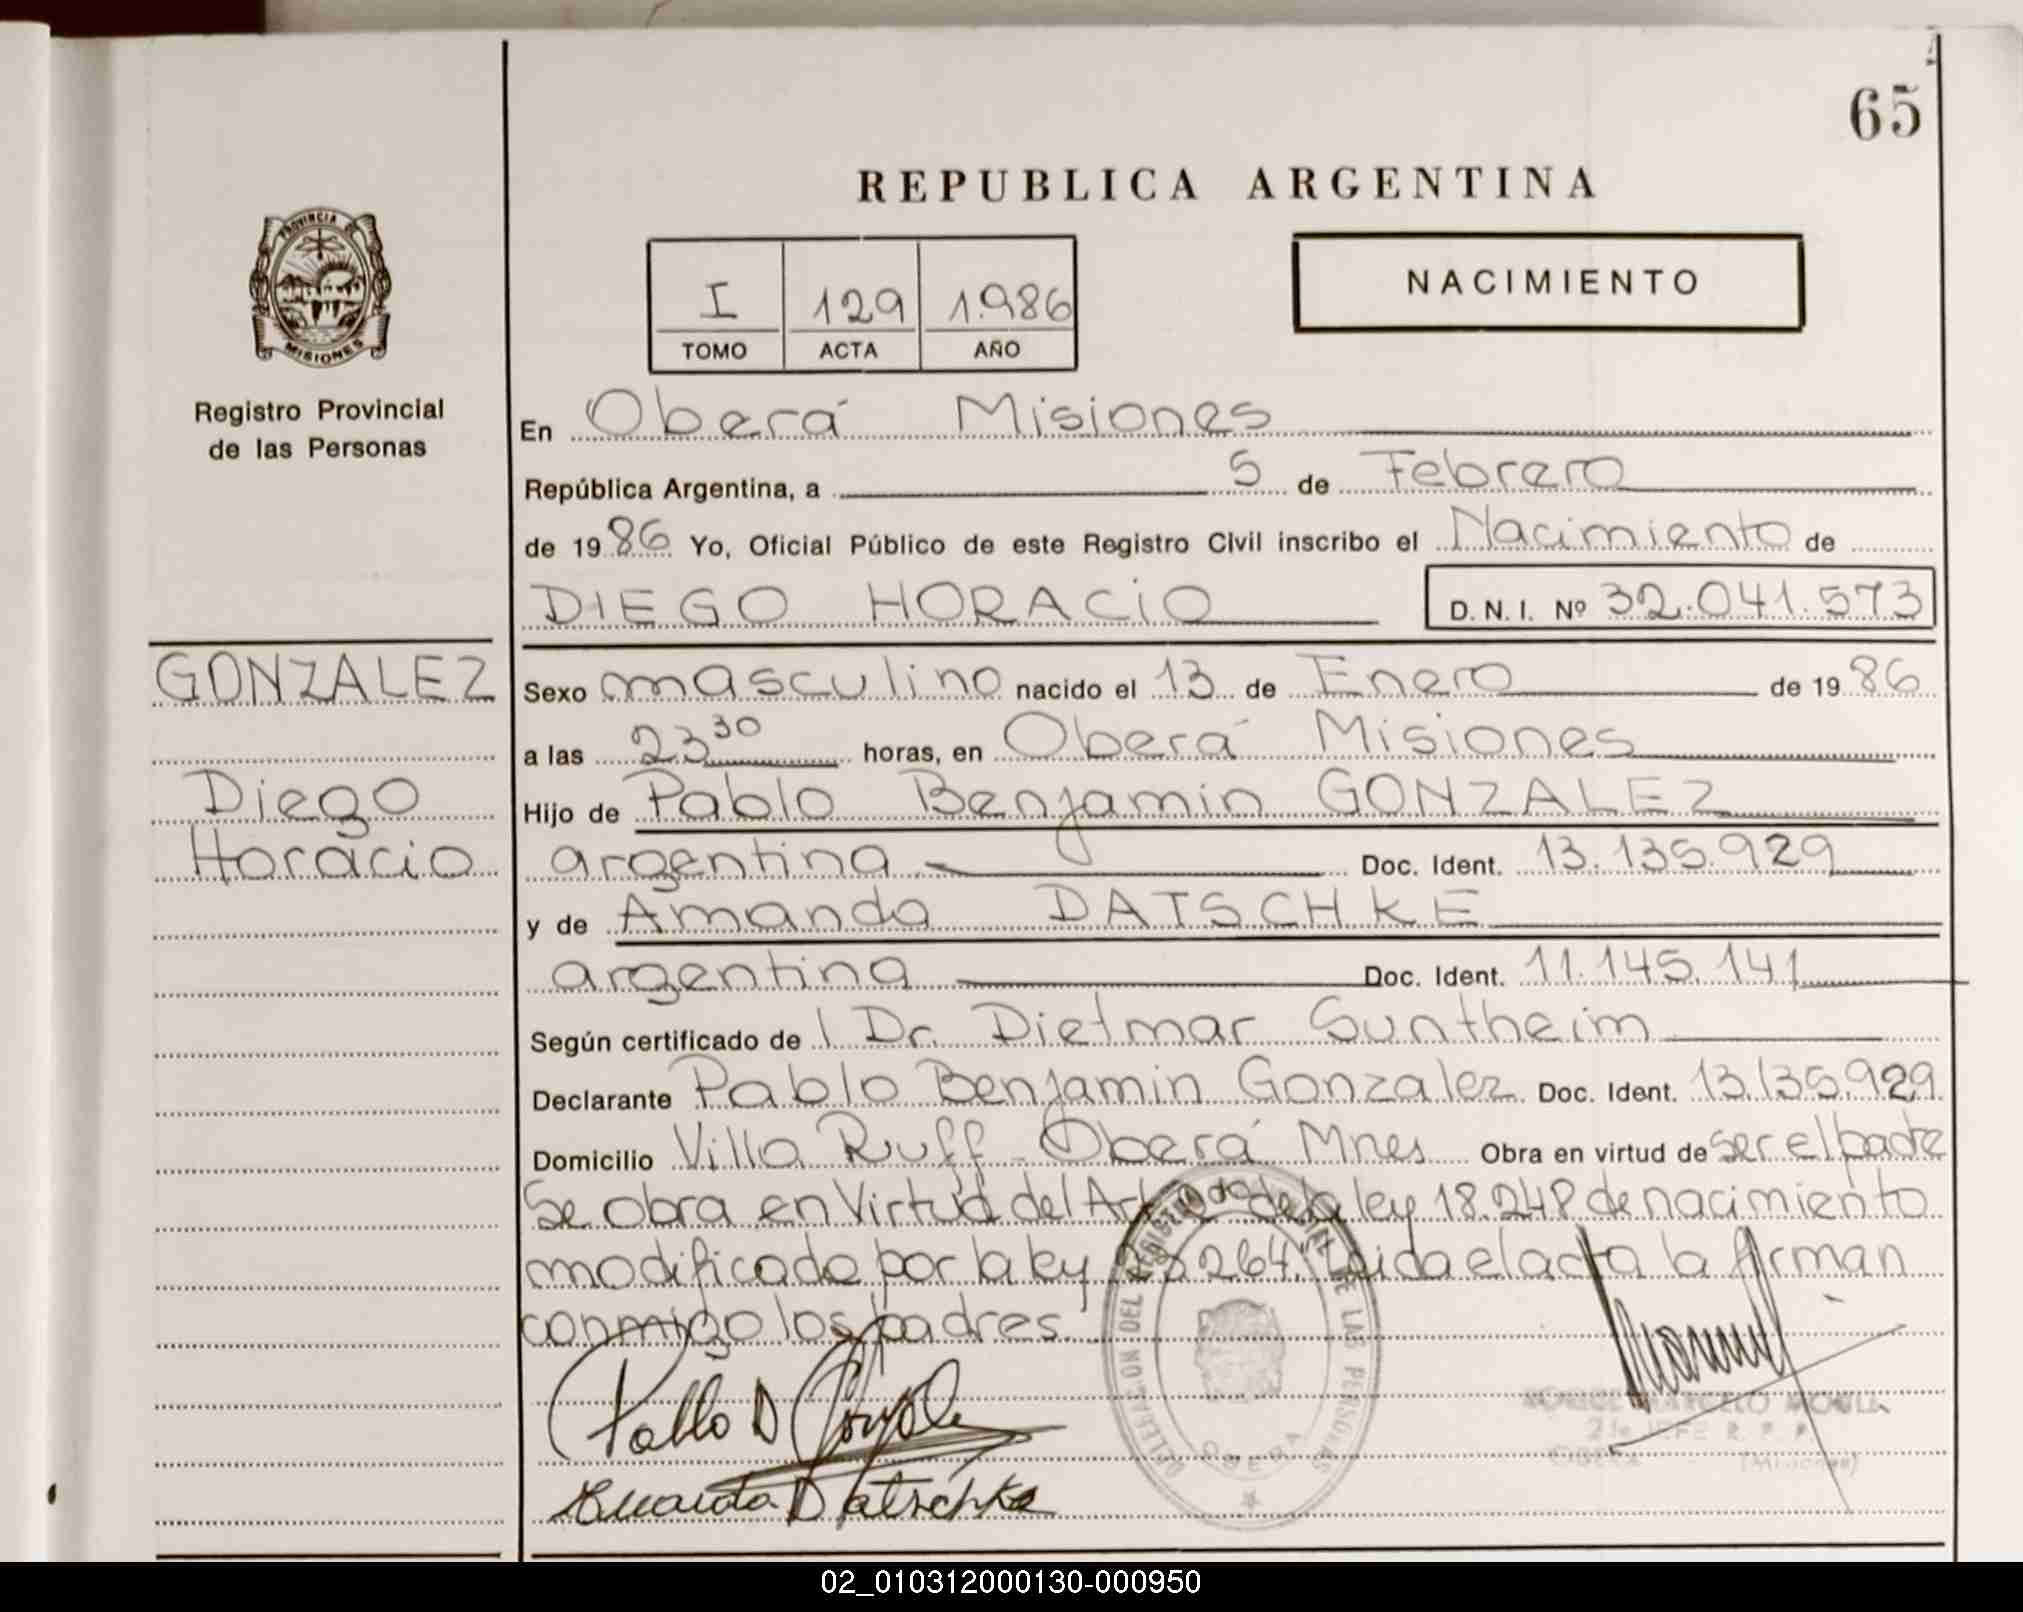 65
REPUBLICA ARGENTINA
PROVINCIA DE
MISIONES
Registro Provincial
de las Personas
I 129 1.986
TOMO ACTA AÑO
NACIMIENTO
En Oberá Misiones
República Argentina, a 5 de Febrero
de 1986 Yo, Oficial Público de este Registro Civil inscribo el Nacimiento de
DIEGO HORACIO D.N.I. Nº 32.041.573
GONZALEZ
Diego
Horacio
Sexo masculino nacido el 13 de Enero de 1986
a las 23 30 horas, en Oberá Misiones
Hijo de Pablo Benjamin GONZALEZ
argentina Doc. Ident. 13.135.929
y de Amanda DATSCHKE
argentina Doc. Ident. 11.145.141
Según certificado de l Dr. Dietmar Suntheim
Declarante Pablo Benjamin Gonzalez Doc. Ident. 13.135.929
Domicilio Villa Ruff - Oberá Mnes Obra en virtud de ser el padre
Se obra en Virtud del Art de la ley 18.248 de nacimiento
modificado por la ley 23264. Leida el acta la firman
conmigo los padres.
DELEGACION DEL REGISTRO DE LAS PERSONAS
OBERA
MARCELO
2do JEFE R. P. P.
(Misiones)
Datschke
02_010312000130-000950